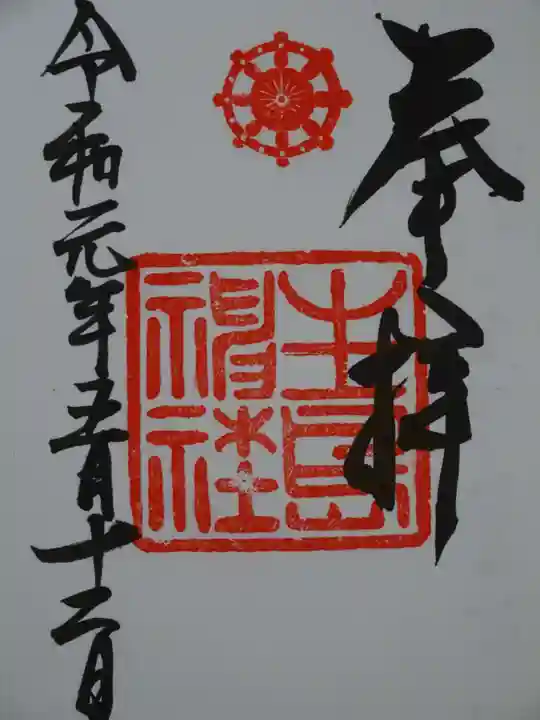 奉拝
生島神社
令和元年五月十二日